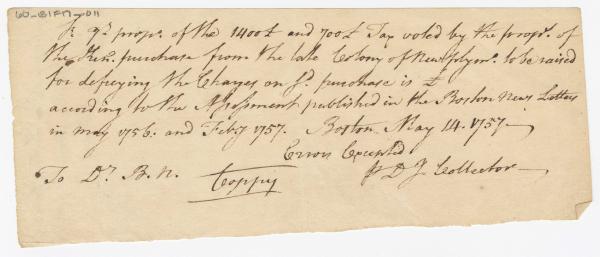 60-BIFM-011
Sr. yr. propn. of the 1400£ and 700£ Tax voted by the proprs. of
the Ken: purchase from the late Colony of New plymo. to be raised
for defreying the Charges on sd. purchase is £
according to the Assessment published in the Boston News Letters
in may 1756. and Febry 1757. Boston. May 14. 1757
Errors Excepted
To Dr. B. N. Coppy p D J Collector